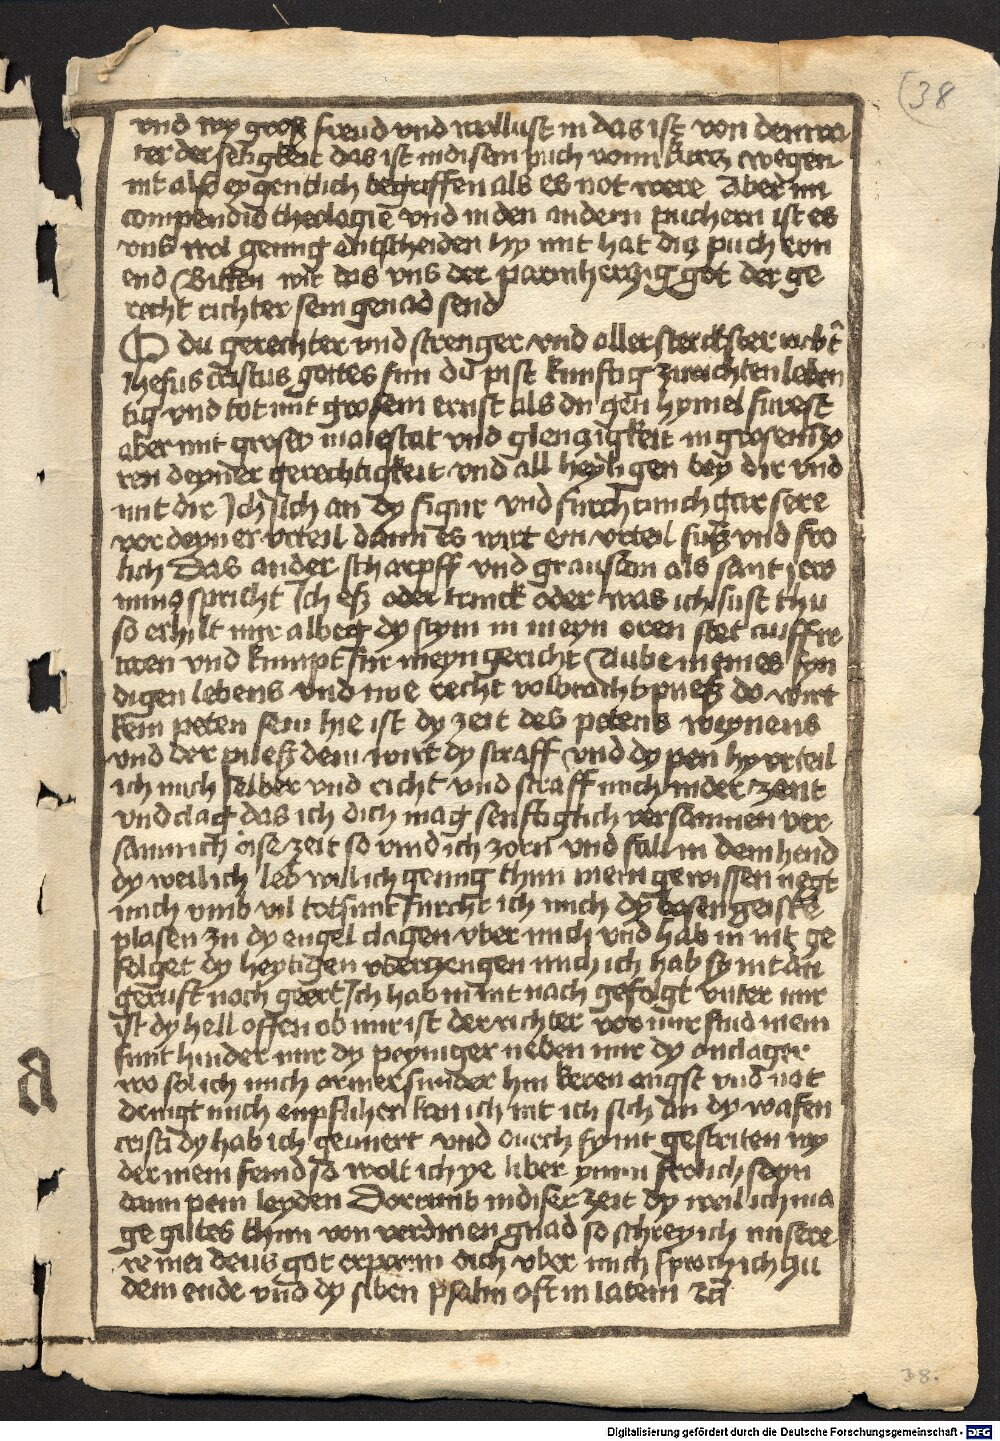 (38
vnd wy groß freud vnd wollust in das ist von dem va
ter der seligkeit das ist in disem puch vonn kurcz wegen
nit also eygentlich begriffen als es not were Aber im
compendio theologie vnd in den andern puchern ist es
vns wol genug entscheiden hy mit hat diz puch eyn
end Bitten wir das vns der parmherczig got der ge
recht richter sein genad send
O du gerechter vnd strenger vnd aller sterckster
Jhesus cristus gottes sun du pist kunftig zurichten leben
tig vnd tot mit grosem ernst als du gen hymel furest
aber mit groser maiestat vnd glenczigkeit in grosem
ren deyner gerechtigkeit vnd all heyligen bey dir vnd
mit dir Jch sich an dy figur vnd furcht mich gar sere
vor deyner vrteil dann es wirt ein vrteil susz vnd fro
lich Das ander scharpff vnd grausem als sant jero
nimus spricht Jch esz oder trinck oder was ich sust thu
so erhilt mir albeg dy stym in meyn oren stet auff ir
toten vnd kumpt fur meyn gericht Aube meines syn
digen lebens vnd nye recht volbracht puesz do wirt
kein peten sein hie ist dy zeit des petens weynens
vnd der puesz den wirt dy straff vnd dy pen hy vrteil
ich mich selber vnd richt vnd straff mich in der zeit
vnd clag das ich dich mag senftiglich versamen ver
saum ich dise zeit so vind ich zorn vnd fall in dein hend
dy weil ich leb will ich genug thun mein gewissen negt
mich vmb vil totsunt furcht ich mich dy bosen geiste
plasen zu dy engel clagen vber mich vnd hab in nit ge
folget dy heyligen vberczeugen mich ich hab sy nit an
geruft noch geert Jch hab in nit nach gefolgt vnter mir
ist dy hell offen ob mir ist der richter vor mir sind mein
sunt hinder mir dy peyniger neben mir dy anclager
wo sol ich mich armer sunder hin keren angst vnd not
dringt mich enpflihen kan ich nit ich sich an dy wafen
cristi dy hab ich geunert vnd durch sy nit gestriten wy
der mein feind so wolt ich ye liber ymm frolich seyn
dann pein leyden Dorumb in diser zeit dy weil ich ma
ge gutes thun von verdinen gnad so schrey ich misere
re mei deus got erparm dich vber mich sprach ich zu
dem ende vnd dy siben psalm oft in latein
a
38.
Digitalisierung gefördert durch die Deutsche Forschungsgemeinschaft - DFG